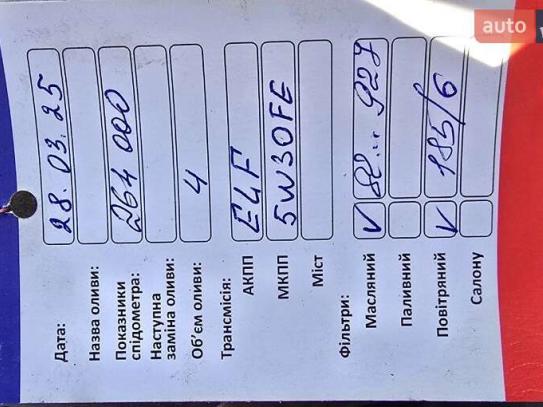 Дата: 28.03.25
Назва оливи:
Показники
спідометра: 264 000
Наступна
заміна оливи:
Об'єм оливи: 4
Трансмісія:
АКПП ELF
МКПП 5W30FE
Міст
Фільтри:
Масляний V
Паливний
Повітряний V 185/6
Салону
auto